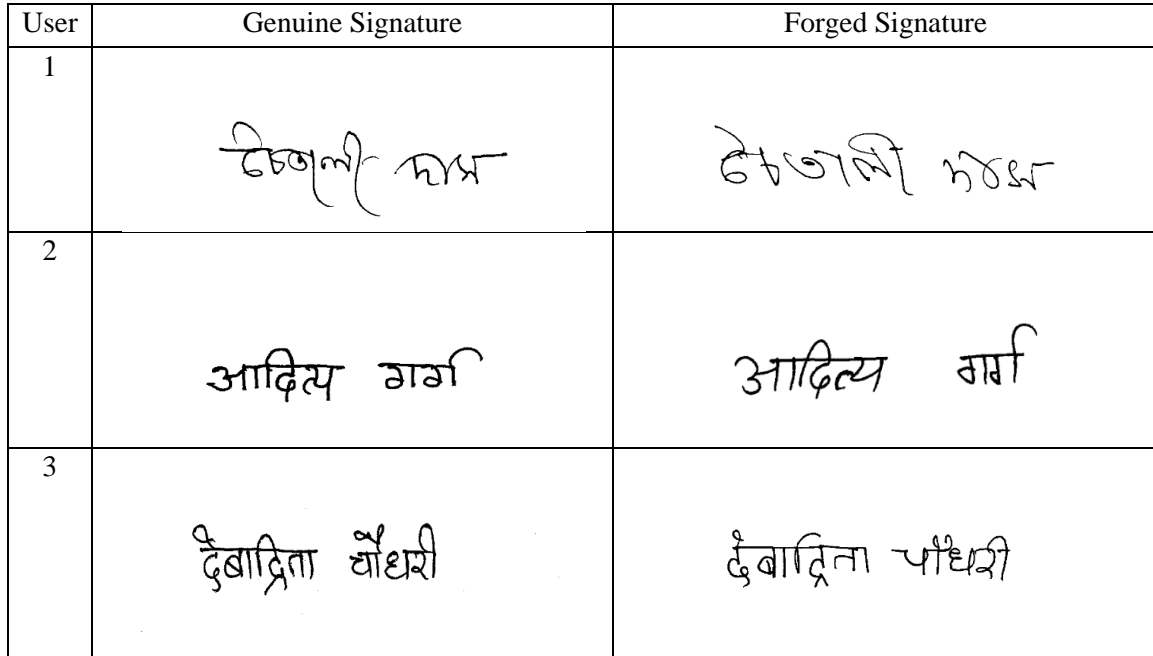 User Genuine Signature Forged Signature
1
2
आदित्य गर्ग आदित्य गर्ग
3
देबाद्रिता चौधरी देबाद्रिता चौधरी